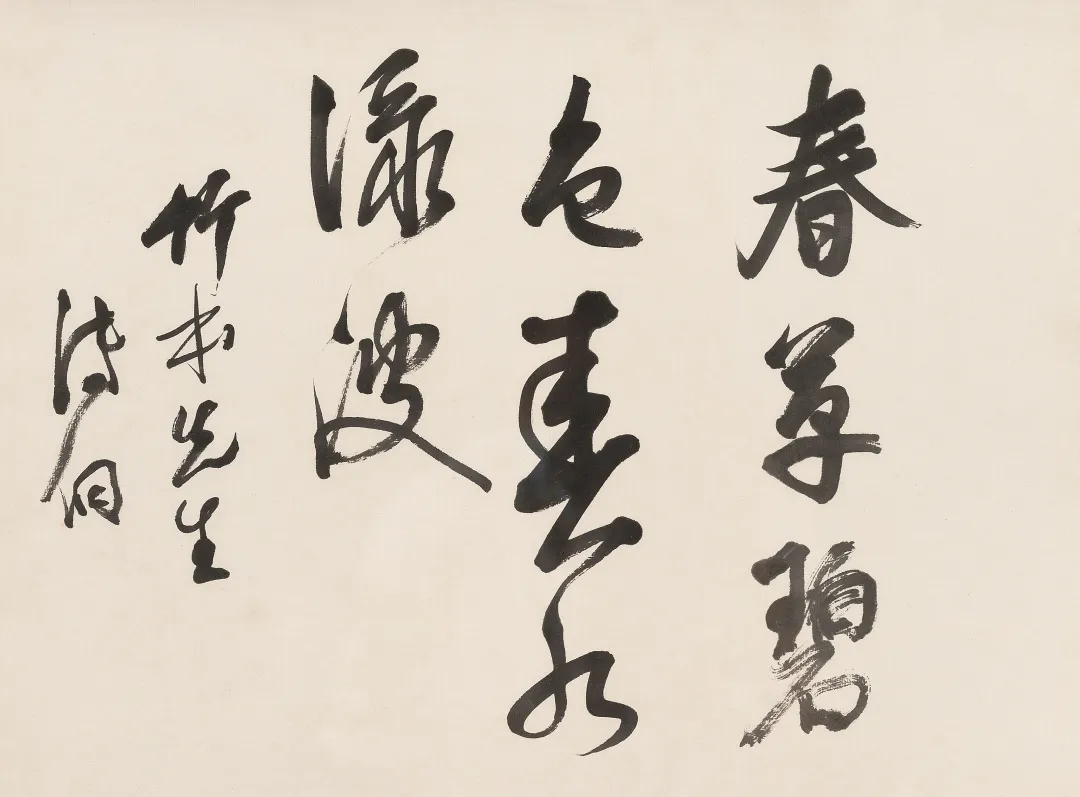 春草碧
色春水
渌波
竹先生